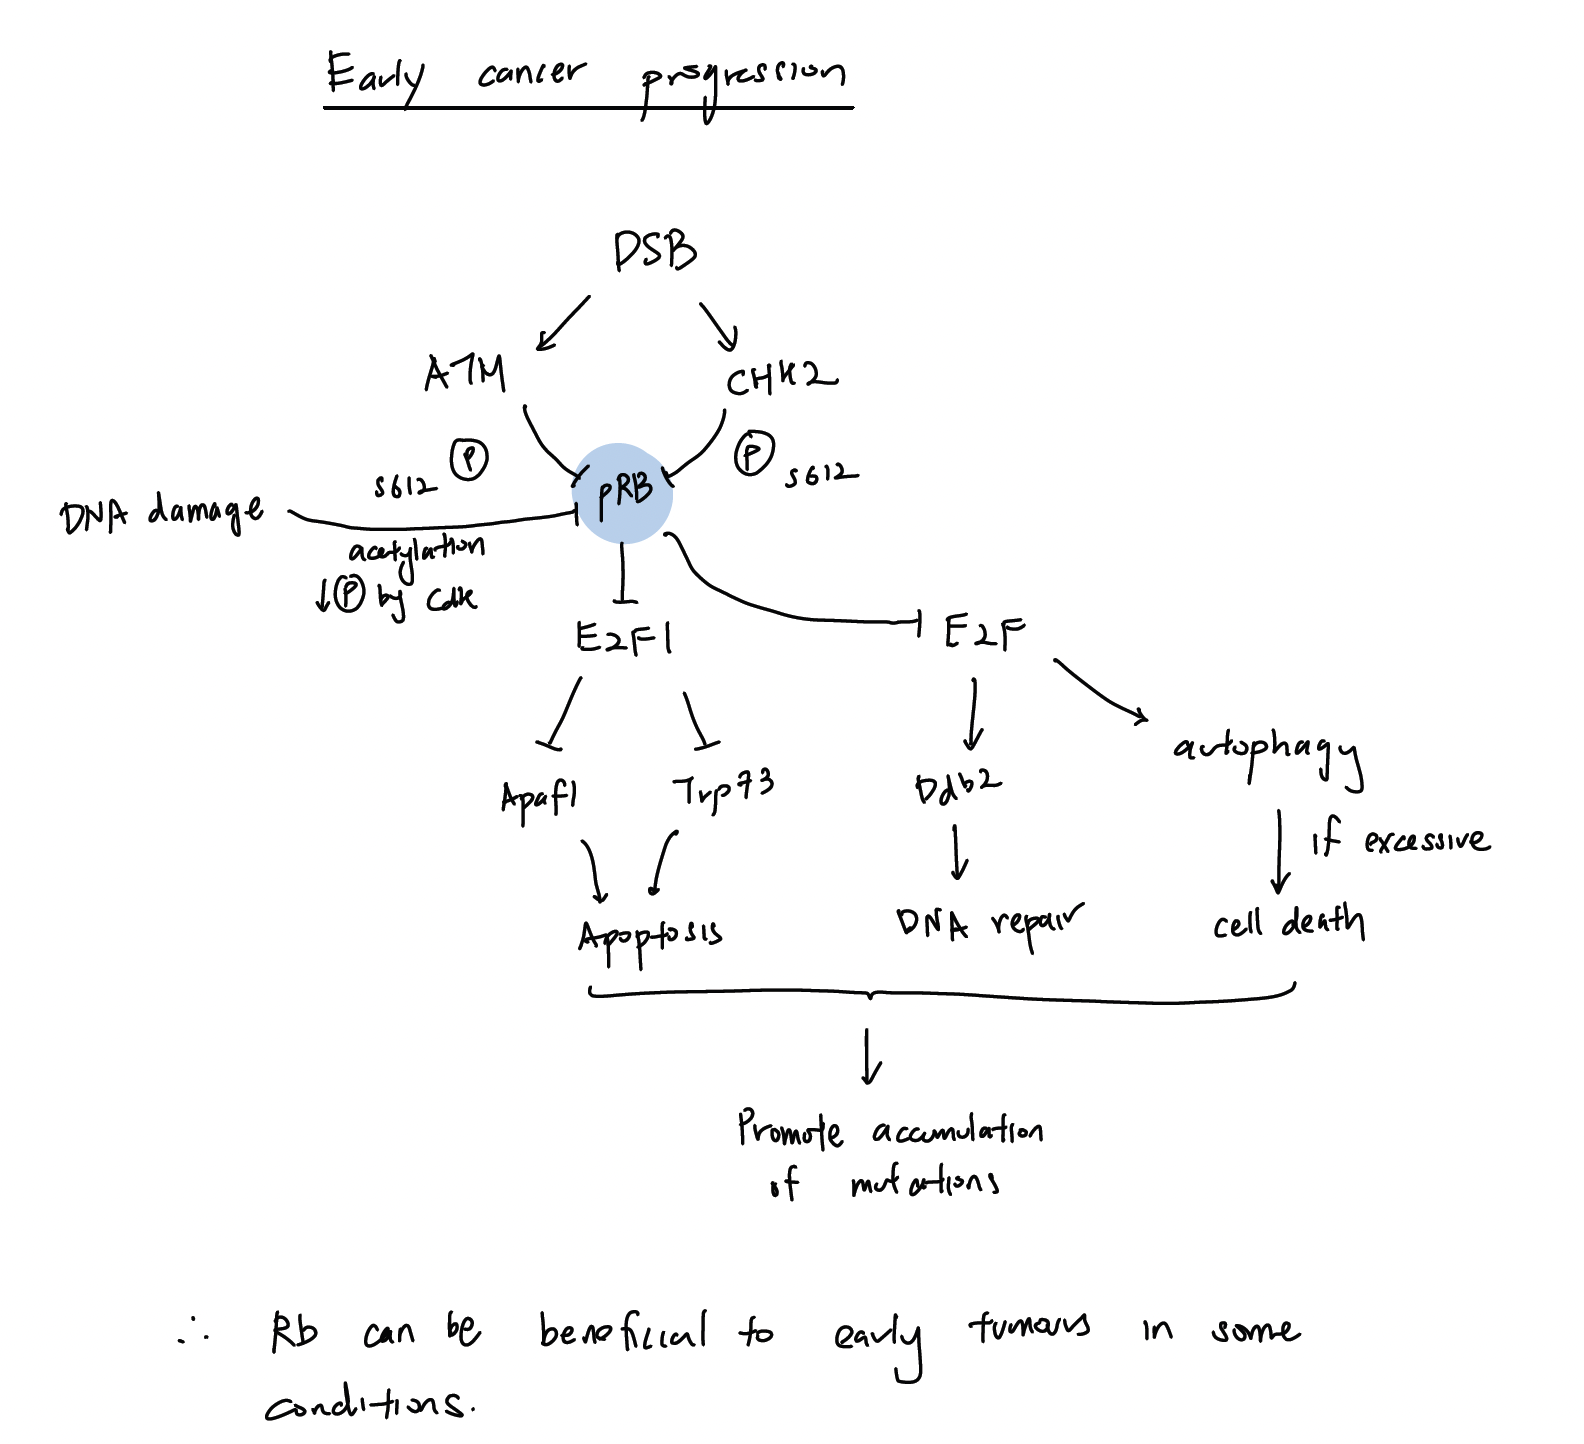 Early cancer progression
DSB
ATM
CHK2
S612 P
P S612
pRB
DNA damage
acetylation
↓ P by Cdk
E2F1
E2F
Apaf1
Trp73
Ddb2
autophagy
if excessive
Apoptosis
DNA repair
cell death
Promote accumulation
of mutations
∴ Rb can be beneficial to early tumours in some
conditions.